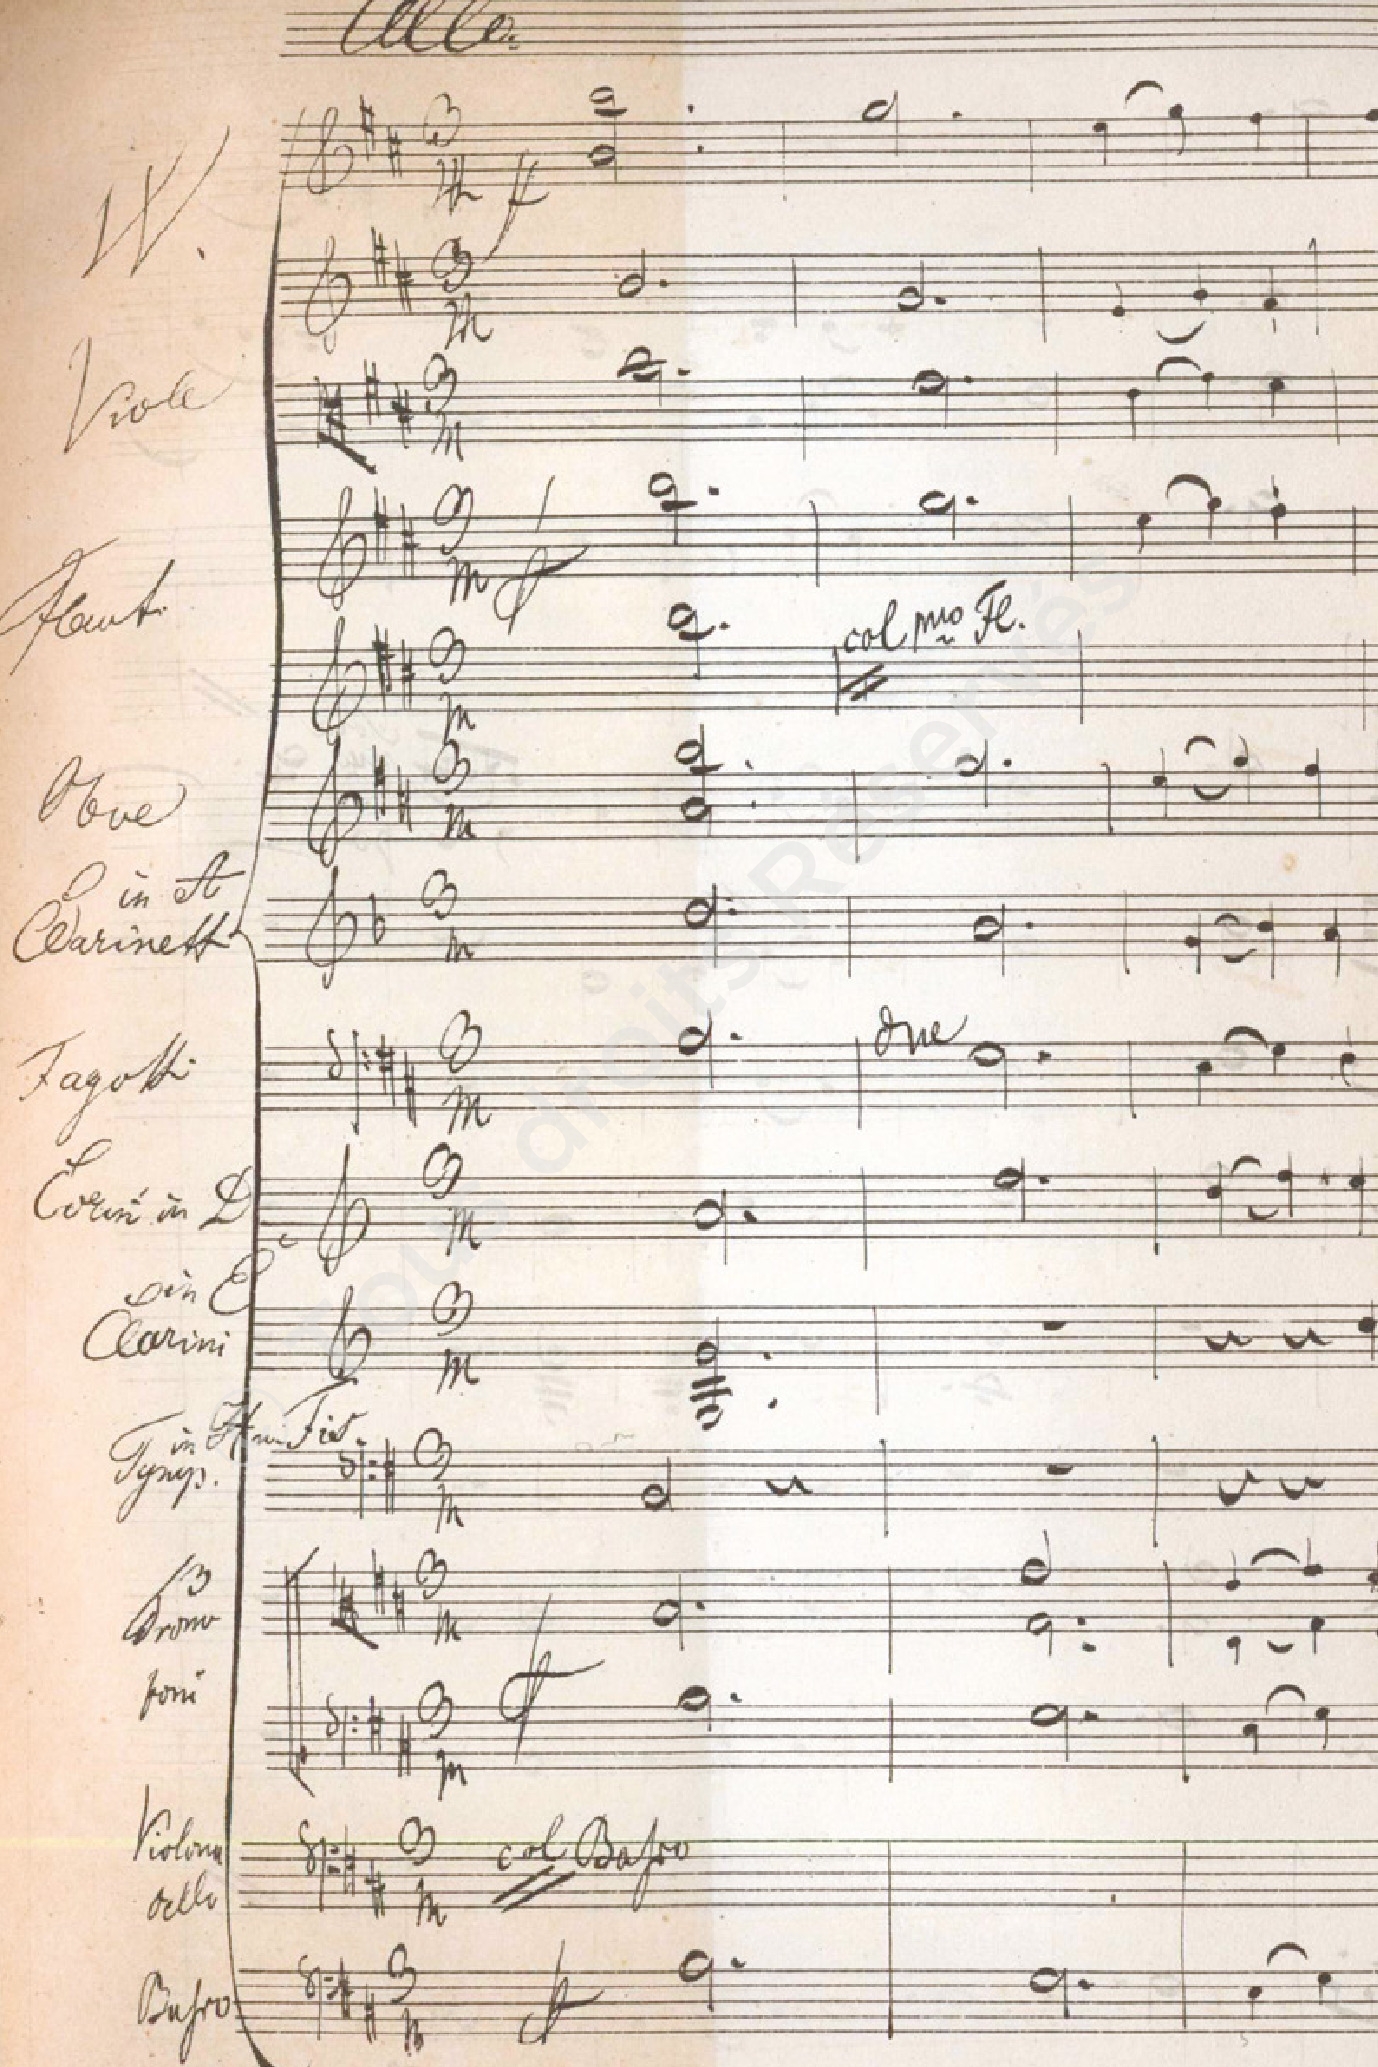 Allo.
VV.
Viole
Flauti
col pmo Fl.
Oboe
in A
Clarinetti
Fagotti
due
Corni in D
in E
Clarini
Tymp.
3
Trom
boni
Violon
cello
col Basso
Basso
Tous droits Réservés